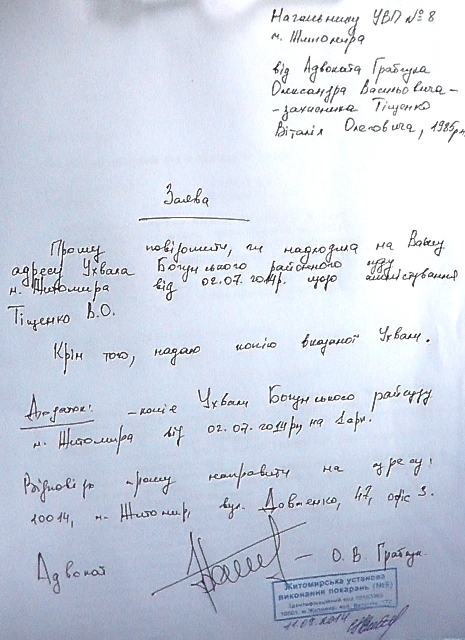 Начальнику УВП №8
м. Житомира
від Адвоката Грабчука
Олександра Васильовича -
- захисника Тіщенко
Віталія Олеговича, 1985р.н.
Заява
Прошу повідомити, чи надходила на Вашу
адресу Ухвала Богунського районного суду
м. Житомира від 02.07.2014р. щодо амністування
Тіщенко В.О.
Крім того, надаю копію вказаної Ухвали.
Додаток: - копія Ухвали Богунського райсуду
м. Житомира від 02.07.2014р. на 1 арк.
Відповідь прошу направити на адресу:
10014, м. Житомир, вул. Довженко, 47, офіс 3.
Адвокат - О. В. Грабчук
Житомирська установа
виконання покарань (№8)
Ідентифікаційний код
м. Житомир,
11.09.2014